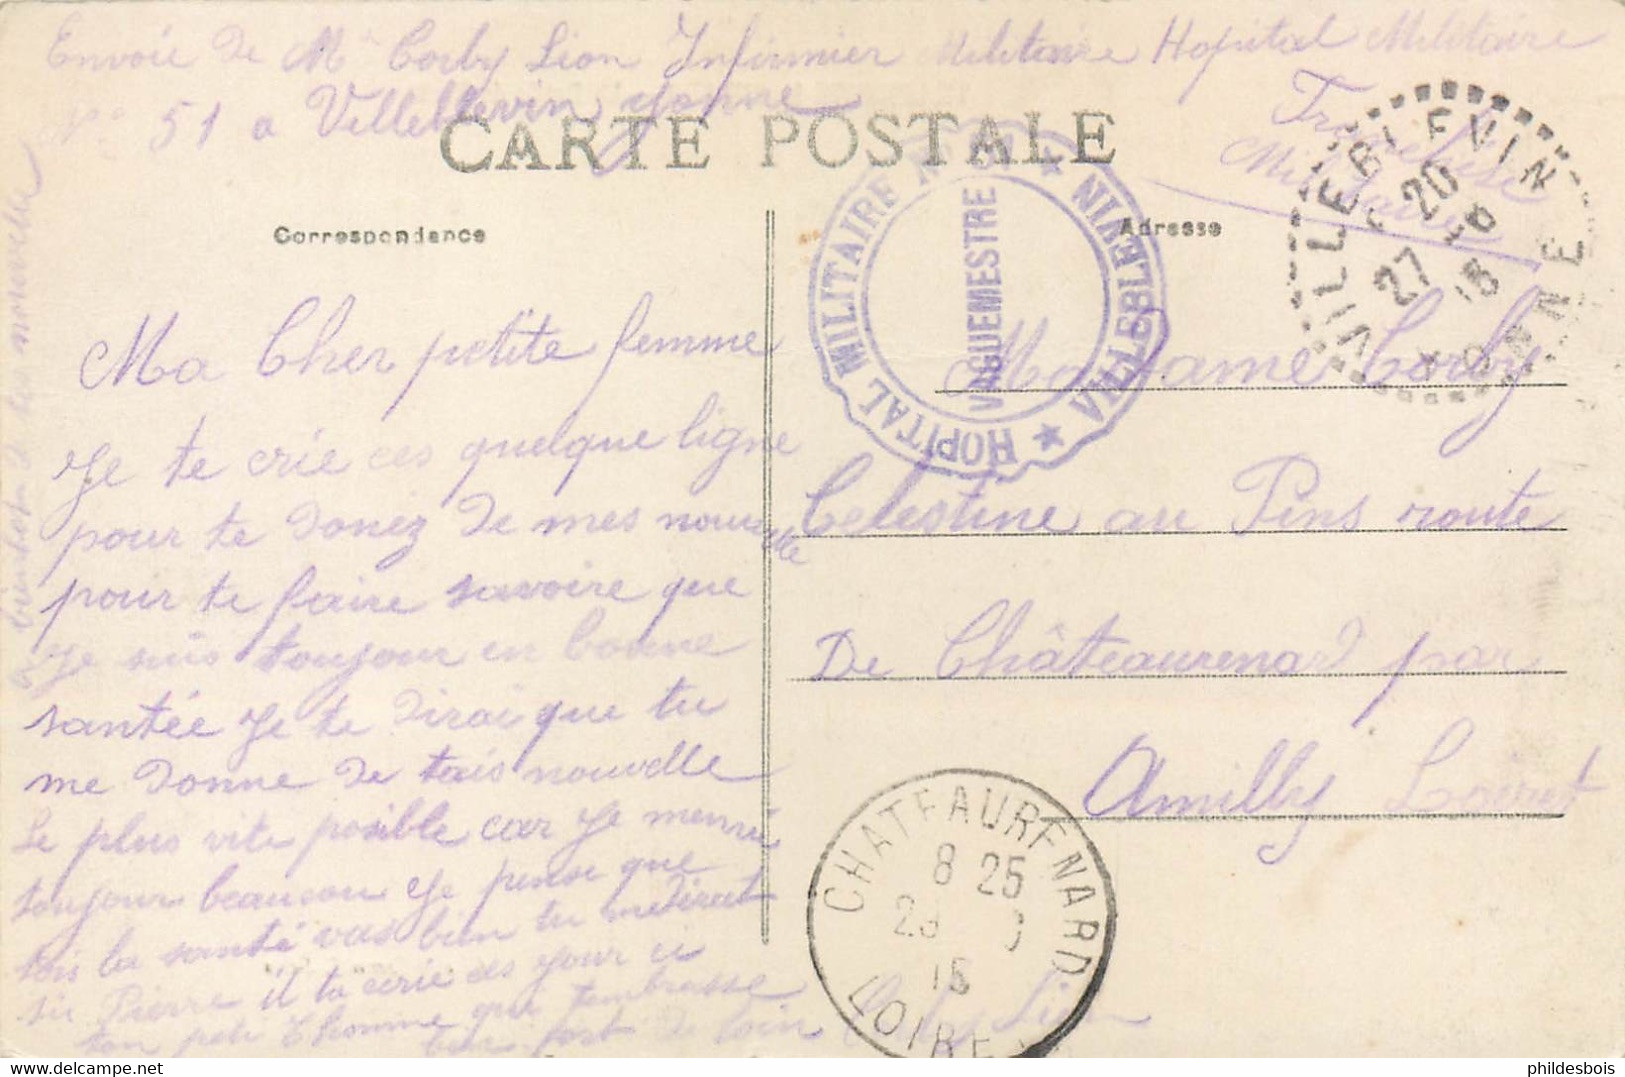 Envoie De Mr Corby Lion Infirmier Militaire Hopital Militaire
No 51 a Villeblevin Yonne
CARTE POSTALE
Militaire
Correspondance
Adresse
HOPITAL MILITAIRE No 51 ★ VILLEBLEVIN ★
VAGUEMESTRE
VILLEBLEVIN
YONNE
20
27
15
Ma Cher petite femme
Je te crie ces quelque ligne
pour te Donez De mes nouvelle
pour te faire savoire que
Je suis toujour en bonne
santée Je te Dirai que tu
me Donne De tais nouvelle
Le plus vite posible car Je mennui
toujour beaucou Je pense que
tois la santé vas bien tu me Dirat
si Pierre il ta crie ces jour ci
ton peti Thomme que tembrasse
bien fort De loin Corby Lion
Madame Corby
Celestine au Pins route
De Châteaurenard par
Amilly Loiret
CHATEAURENARD
8 25
15
LOIRET
phildesbois